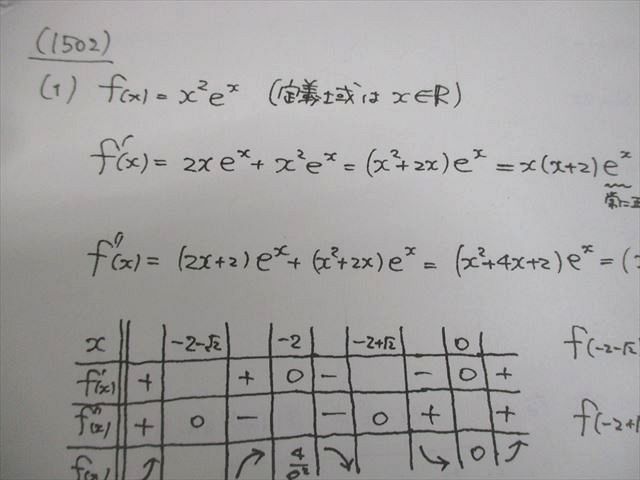 (1502)
(1) f(x) = x²eˣ (定義域は x∈R)
f'(x) = 2xeˣ + x²eˣ = (x²+2x)eˣ = x(x+2)eˣ
常に正
f''(x) = (2x+2)eˣ + (x²+2x)eˣ = (x²+4x+2)eˣ = (
x -2-√2 -2 -2+√2 0 f(-2-√2
f'(x) + + 0 - - 0 +
f''(x) + 0 - - 0 + + f(-2+
f(x) ↗ ↗ 4/e² ↘ ↘ 0 ↗